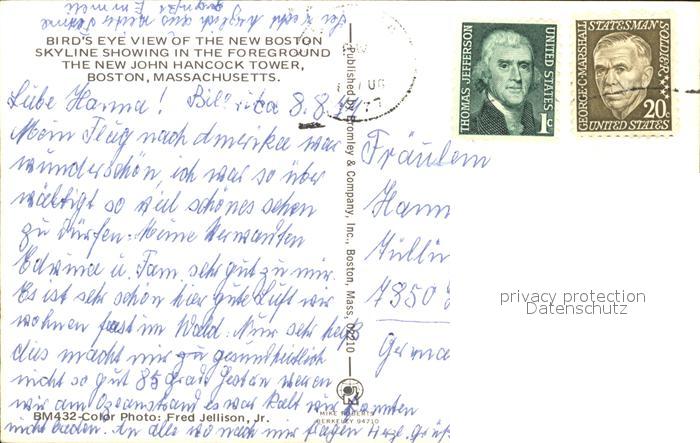 BIRD'S EYE VIEW OF THE NEW BOSTON
SKYLINE SHOWING IN THE FOREGROUND
THE NEW JOHN HANCOCK TOWER,
BOSTON, MASSACHUSETTS.
Liebe Hanna! Billerica 8.8.77
Mein Flug nach Amerika war
wunderschön, ich war so über
wältigt so viel schönes sehen
zu dürfen. Meine Verwandten
Edwina u. Fam. sehr gut zu mir.
Es ist sehr schön hier gute Luft wir
wohnen fast im Wald. Nur sehr heiß
dies macht mir zu gesundheitlich
nicht so gut 85 grad. Gestern waren
wir am Ozeanstrand es war kalt wir konnten
nicht baden.
BM432-Color Photo: Fred Jellison, Jr.
Published by Bromley & Company, Inc., Boston, Mass. 02210
MIKE ROBERTS
BERKELEY 94710
THOMAS JEFFERSON
UNITED STATES
1c
GEORGE C. MARSHALL
STATESMAN
SOLDIER
20c
UNITED STATES
Fräulein
Hann
7350
Germa
privacy protection
Datenschutz